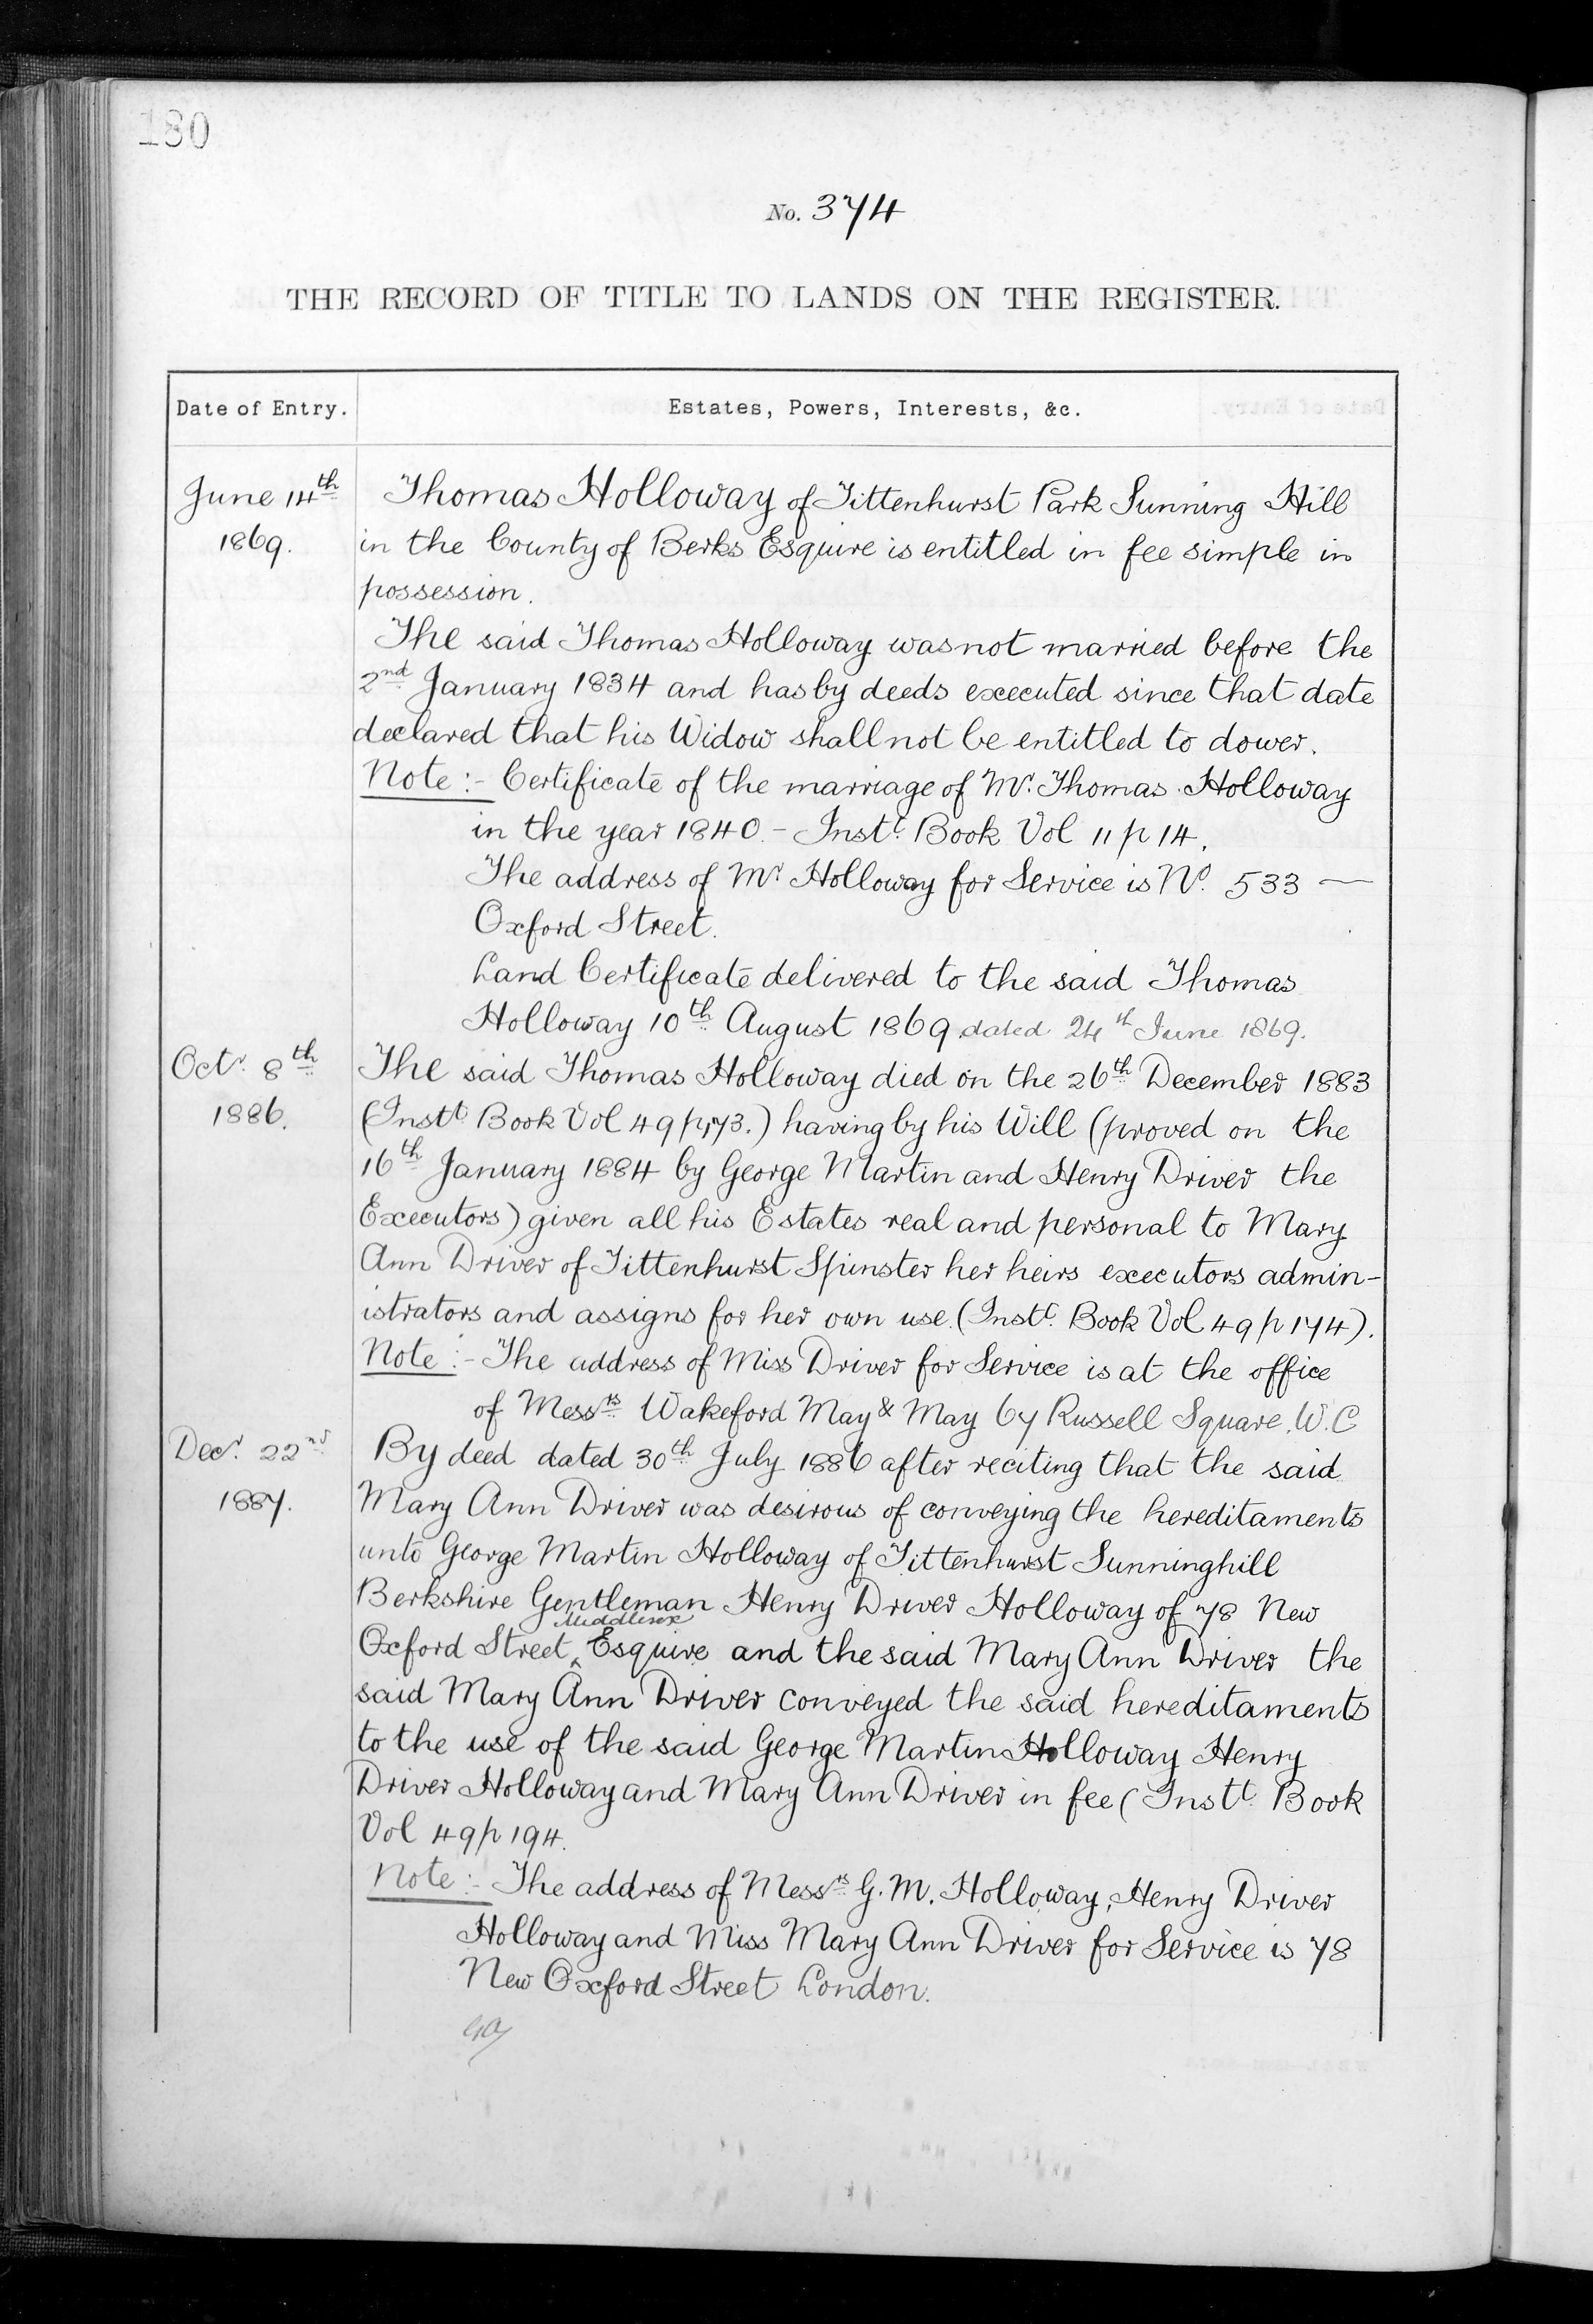 180
No. 374
THE RECORD OF TITLE TO LANDS ON THE REGISTER.
Date of Entry.
Estates, Powers, Interests, &c.
June 14th
1869.
Thomas Holloway of Tittenhurst Park Sunning Hill
in the County of Berks Esquire is entitled in fee simple in
possession.
The said Thomas Holloway was not married before the
2nd January 1834 and has by deeds executed since that date
declared that his Widow shall not be entitled to dower.
Note:- Certificate of the marriage of Mr. Thomas Holloway
in the year 1840.- Instt. Book Vol 11 p 14.
The address of Mr Holloway for Service is No. 533 —
Oxford Street.
Land Certificate delivered to the said Thomas
Holloway 10th August 1869 dated 24th June 1869.
Octr. 8th
1886.
The said Thomas Holloway died on the 26th December 1883
(Instt. Book Vol 49 p 173.) having by his Will (proved on the
16th January 1884 by George Martin and Henry Driver the
Executors) given all his Estates real and personal to Mary
Ann Driver of Tittenhurst Spinster her heirs executors admin-
istrators and assigns for her own use. (Instt. Book Vol 49 p 174).
Note:- The address of Miss Driver for Service is at the office
of Messrs Wakeford May & May 67 Russell Square. W.C
Decr. 22nd
1887.
By deed dated 30th July 1886 after reciting that the said
Mary Ann Driver was desirous of conveying the hereditaments
unto George Martin Holloway of Tittenhurst Sunninghill
Berkshire Gentleman Henry Driver Holloway of 78 New
Middlesex
Oxford Street ^ Esquire and the said Mary Ann Driver the
said Mary Ann Driver conveyed the said hereditaments
to the use of the said George Martin Holloway Henry
Driver Holloway and Mary Ann Driver in fee (Instt. Book
Vol 49 p 194.
Note:- The address of Messrs G. M. Holloway, Henry Driver
Holloway and Miss Mary Ann Driver for Service is 78
New Oxford Street London.